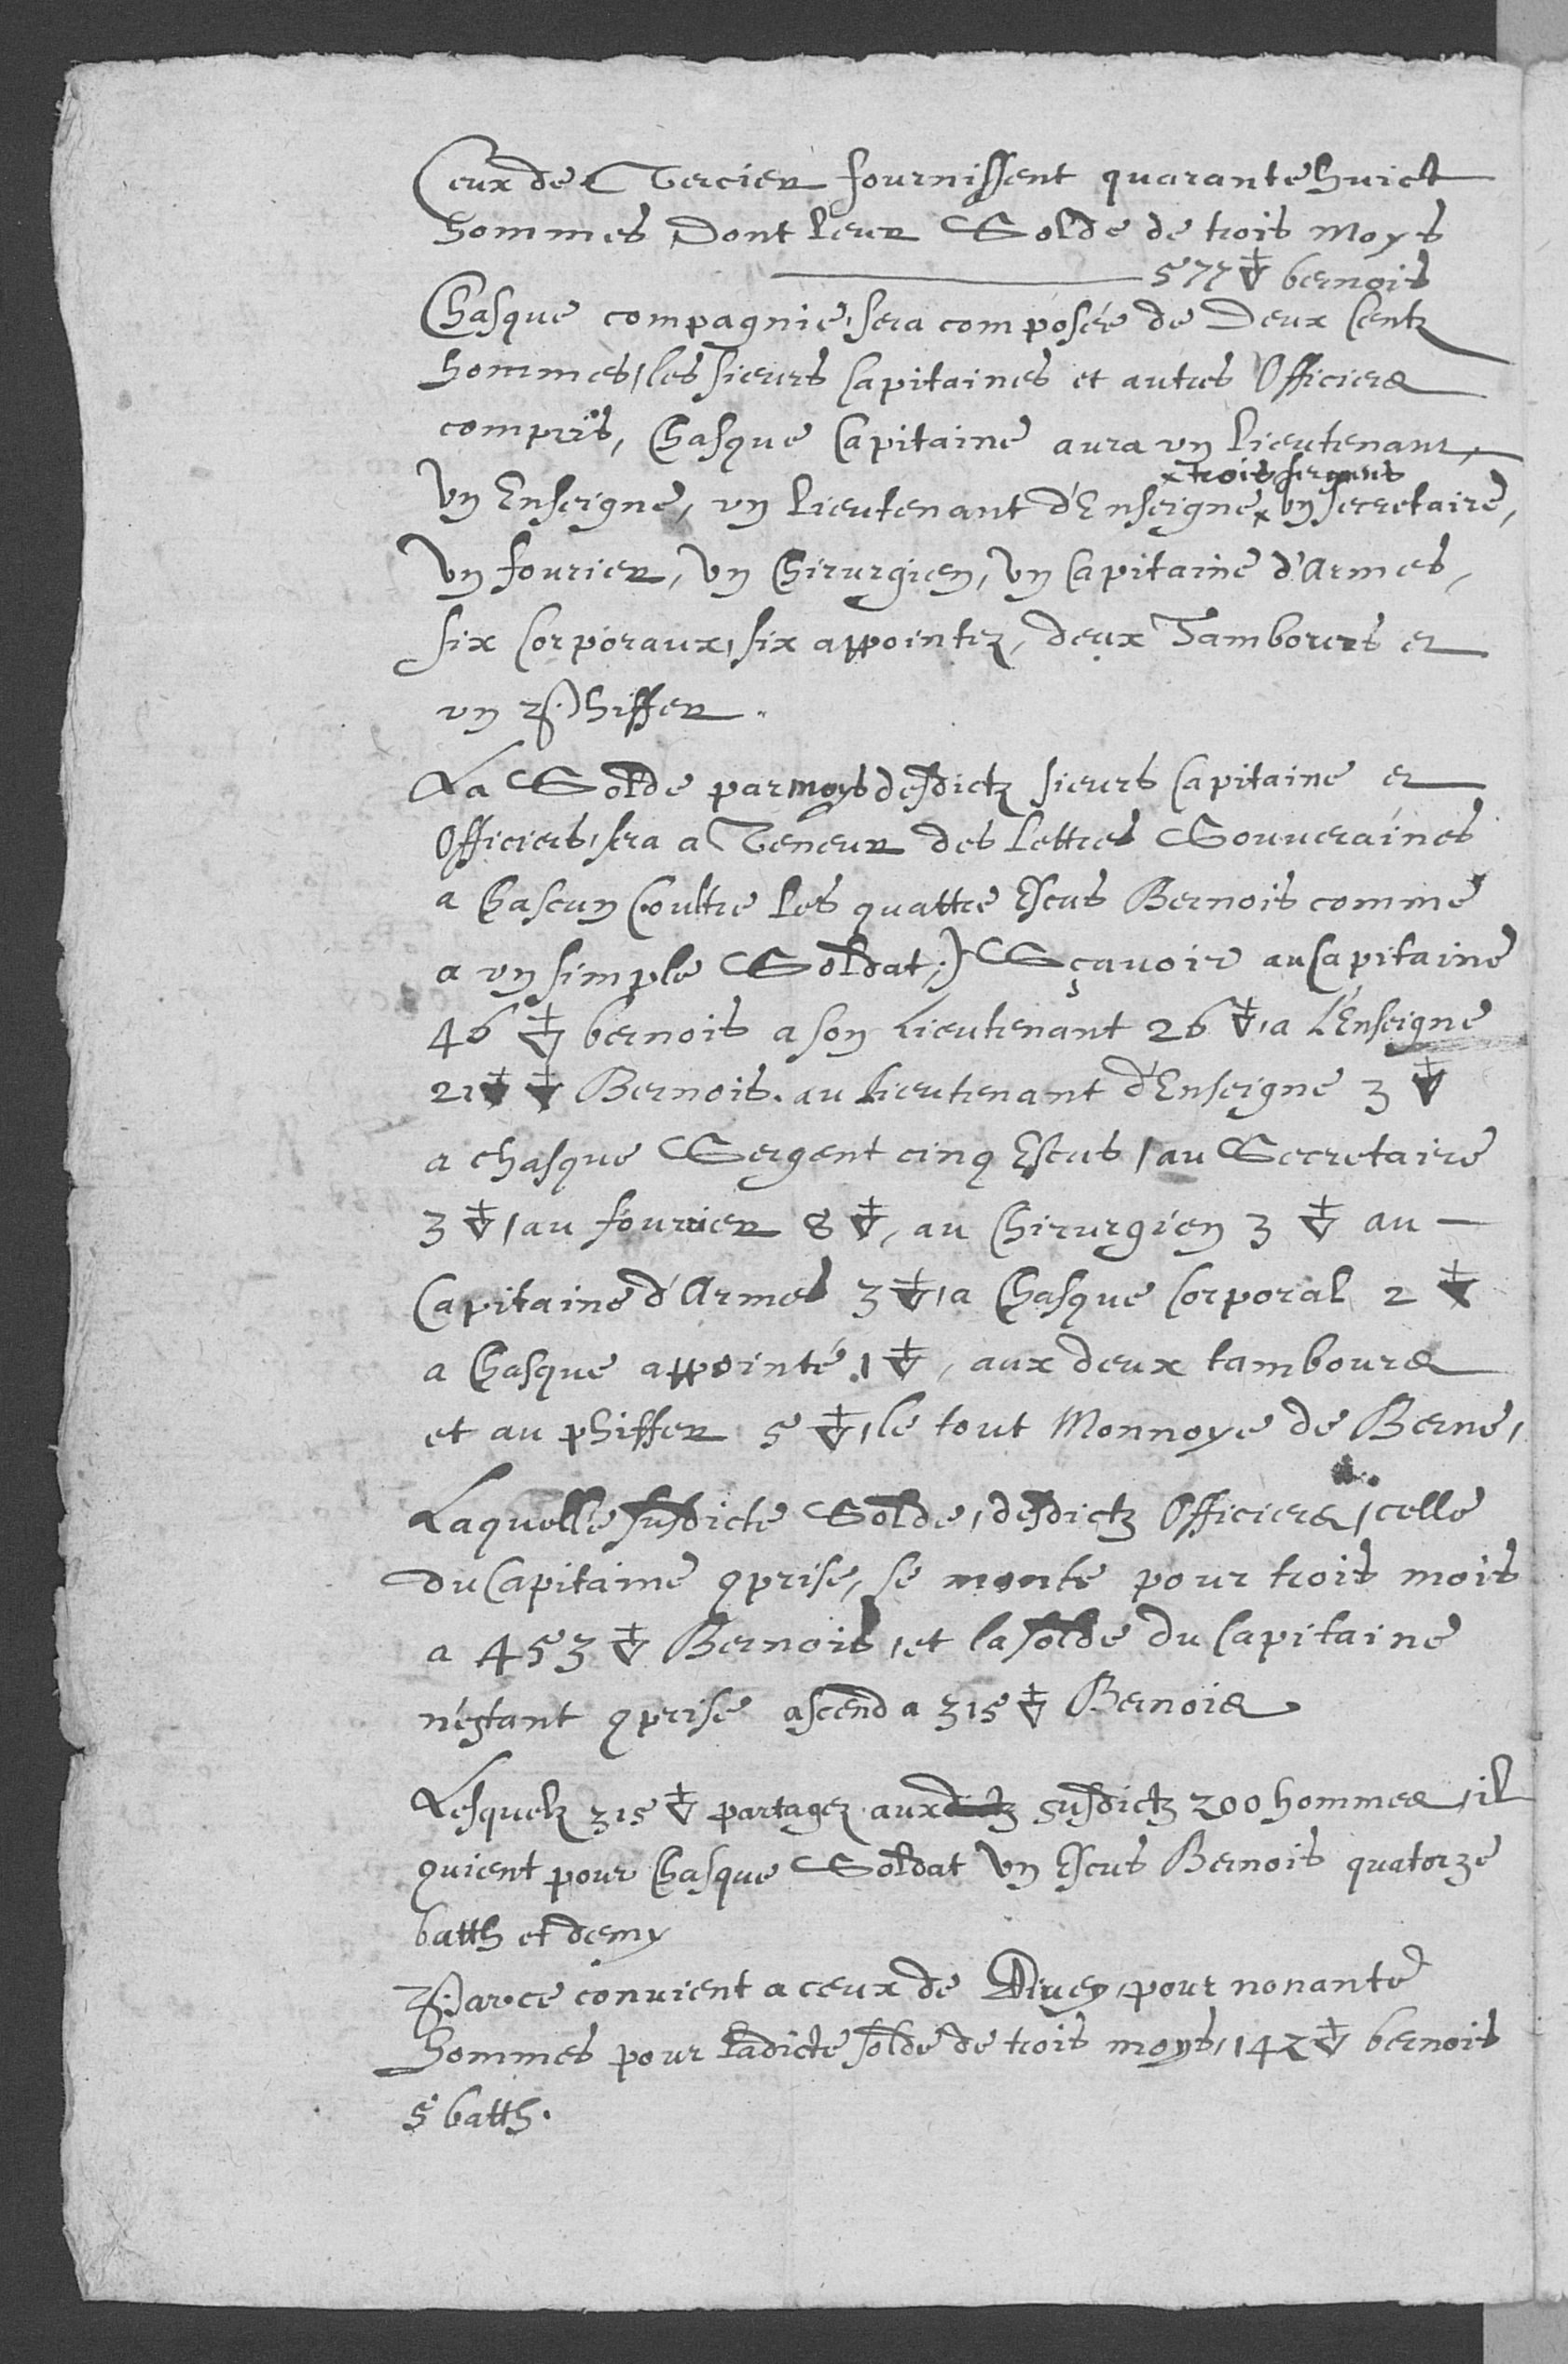 Ceux de Tercier fournissent quarante huict
hommes Dont leur Solde de trois moys
577 ▽ bernois
Chasque compagnie, sera composée de Deux Centz
hommes, les sieurs Capitaines et autres Officiers
compris, Chasque Capitaine aura vn Lieutenant,
x trois sergents
Vn Enseigne, vn Lieutenant d'Enseigne x vn secretaire,
vn fourier, vn Chirurgien, vn Capitaine d'Armes,
six Corporaux, six appointez, deux Tambours et
vn Phiffer.
La Solde par moys desdictz sieurs Capitaine et
Officiers, sera a Teneur des Lettres Souueraines
a Chascun (oultre les quattre Escus Bernois comme
a vn simple Soldat;) Sçauoir au Capitaine
46 ▽ bernois a son Lieutenant 26 ▽, a l'Enseigne
21 ▽ Bernois. au Lieutenant d'Enseigne 3 ▽
a chasque Sergent cinq Escus, au Secretaire
3 ▽, au fourier 8 ▽, au Chirurgien 3 ▽ au
Capitaine d'Armes 3 ▽, a Chasque Corporal 2 ▽
a Chasque appointé .1 ▽, aux deux tambours
et au phiffer 5 ▽, le tout Monnoye de Berne,
Laquelle susdicte Solde, desdictz Officiers, celle
du Capitaine qprise, se monte pour trois mois
a 453 ▽ Bernois, et la solde du Capitaine
n'estant qprise ascend a 315 ▽ Bernois
Lesquelz 315 ▽ partagez aux susdictz 200 hommes, il
quient pour Chasque Soldat vn Escus Bernois quatorze
batth et demy
Par ce conuient a ceux de pour nonante
hommes pour ladicte solde de trois moys, 142 ▽ bernois
5 batth.